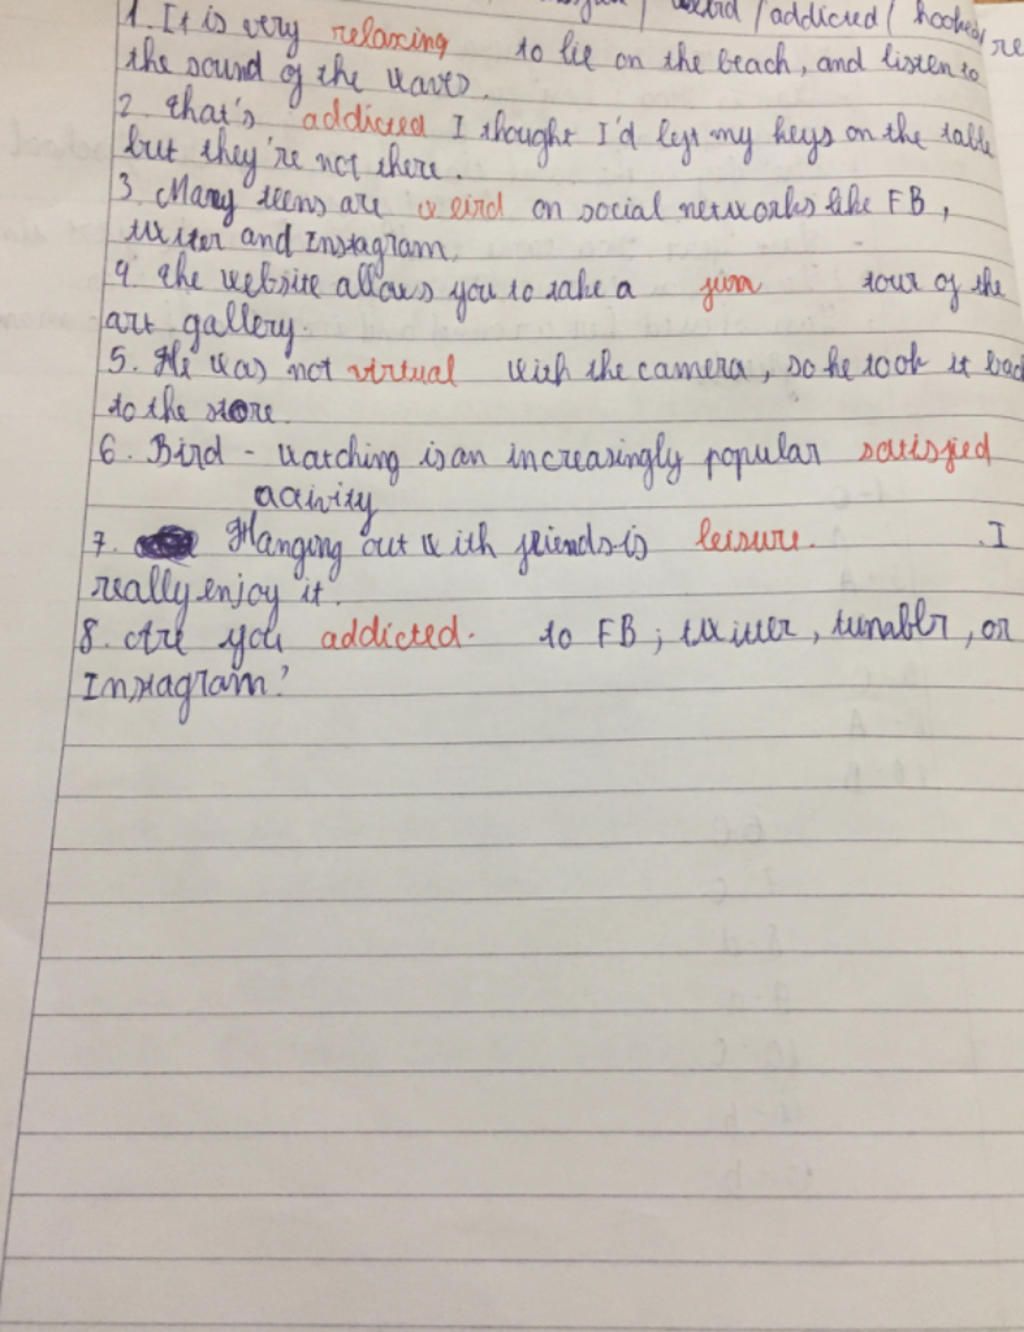 weird / addicted / hooked /
1. It is very relaxing to lie on the beach, and listen to
the sound of the waves.
2. That's addicted I thought I'd left my keys on the table
but they're not there.
3. Many teens are weird on social networks like FB,
twitter and Instagram.
4. The website allows you to take a fun tour of the
art gallery.
5. He was not virtual with the camera, so he took it back
to the store.
6. Bird - watching is an increasingly popular satisfied
activity
7. Hanging out with friends is leisure. I
really enjoy it.
8. Are you addicted. to FB; twitter, tunablr, or
Instagram?